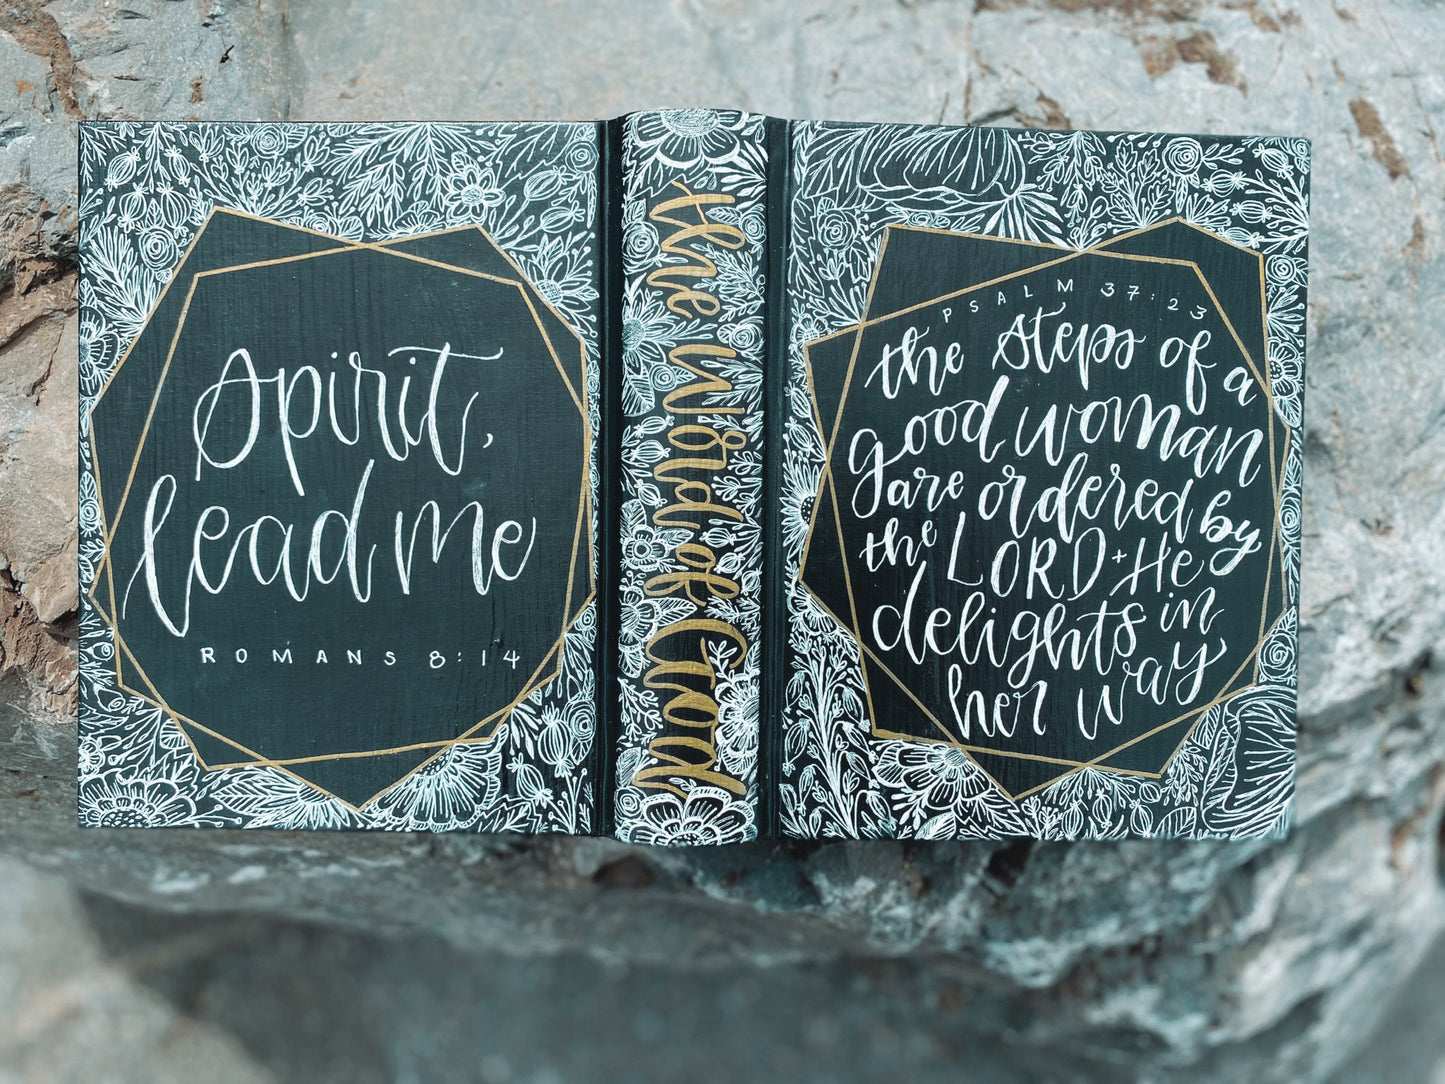 Spirit,
lead me
ROMANS 8:14
the Word of God
PSALM 37:23
the steps of a
good woman
are ordered by
the LORD + He
delights in
her way